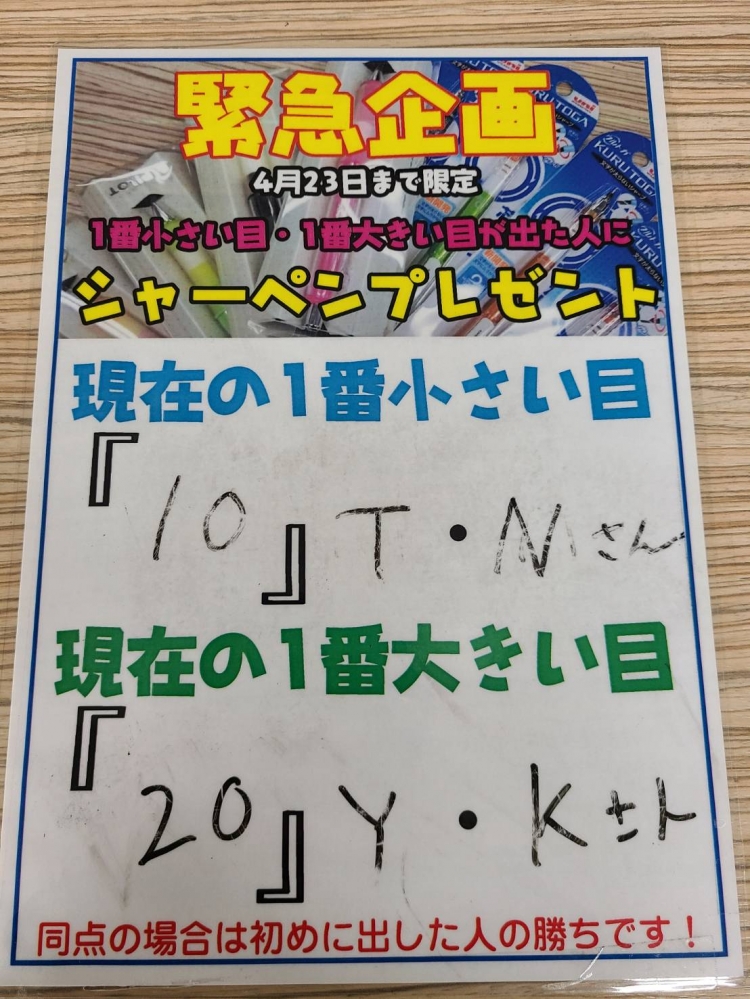 緊急企画
4月23日まで限定
1番小さい目・1番大きい目が出た人に
シャーペンプレゼント
PILOT
KURUTOGA
KURUTOGA
現在の1番小さい目
『10』T・Nさん
現在の1番大きい目
『20』Y・Kさん
同点の場合は初めに出した人の勝ちです！